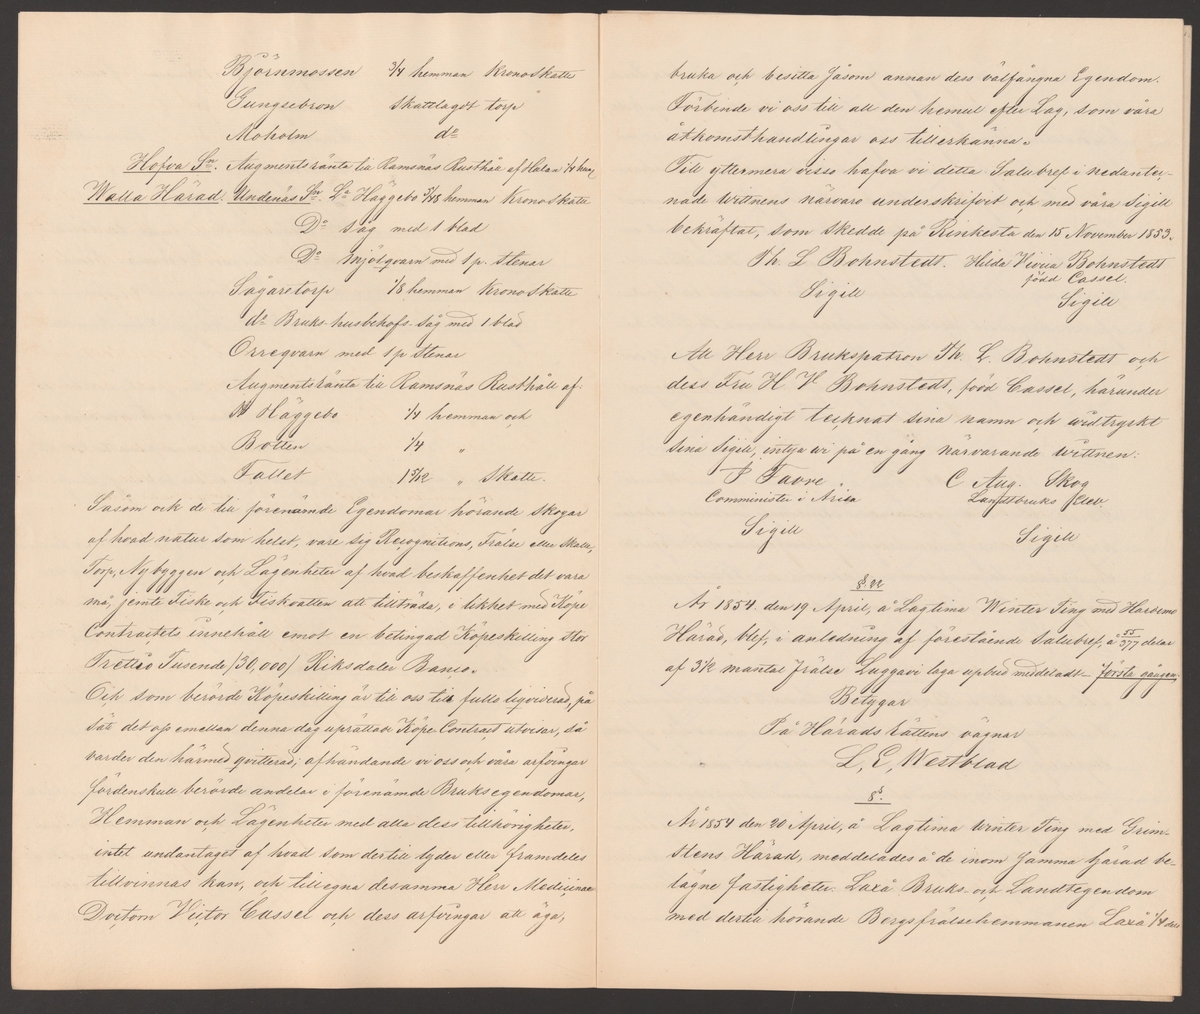 Björnmossen 3/4 hemman Krono Skatte
Gungsebron Skattlagdt torp
Moholm do
Hofva Sn. Augmentsränta till Ramsnäs Rusthåll af Halan 1/4 hem
Walla Härad. Undenäs Sn. La Häggebo 5/48 hemman Krono Skatte
Do såg med 1 blad
Do mjölqvarn med 1 p. Stenar
Sågaretorp 1/8 hemman Krono Skatte
do Bruks-husbehofs såg med 1 blad
Orreqvarn med 1 p Stenar
Augmentsränta till Ramsnäs Rusthåll af.
St Häggebo 1/4 hemman och
Botten 1/4 "
Fallet 15/12 " Skatte.
Såsom ock de till förenämde Egendomar hörande skogar
af hvad natur som helst, vare sig Recognitions, Frälse eller Skatte,
Torp, Nybyggen och Lägenheter af hvad beskaffenhet det vara
må, jemte Fiske och Fiskvatten att tillträda, i likhet med Köpe
Contractets innehåll emot en betingad Köpeskilling stor
Trettio Tusende /30,000/ Riksdaler Banco.
Och som berörde Köpeskilling är till oss till fullo liqviderad, på
sätt det oss emellan denna dag uprättade Köpe Contract utvisar, så
varder den härmed qvitterad; afhändande vi oss och våra arfvingar
fördenskull berörde andelar i förenämde Bruksegendomar,
Hemman och Lägenheter med alla dess tillhörigheter,
intet undantaget af hvad som dertill lyder eller framdeles
tillvinnas kan, och tillegna desamma Herr Medicinae
Doctorn Victor Cassel och dess arfvingar att äga,
bruka och besitta såsom annan dess välfångna Egendom.
Förbinde vi oss till all den hemul efter Lag, som våra
åtkomsthandlingar oss tillerkänna.
Till yttermera visso hafva vi detta Salubref i nedanter-
nade wittnens närvaro underskrifvit och med våra Sigill
bekräftat, som skedde på Rinkesta den 15 November 1853.
Th. L Bohnstedt. Hilda Viviia Bohnstedt
född Cassel.
Sigill Sigill
Att Herr Brukspatron Th. L. Bohnstedt och
dess Fru H V Bohnstedt, född Cassel, härunder
egenhändigt tecknat sina namn och widtryckt
sina Sigill, intyga vi på en gång närvarande wittnen:
P Favre C Aug. Skog
Comminister i Ärila Landtbruks Elev.
Sigill Sigill
§ 22
År 1854 den 19 April, å Lagtima Winter Ting med Hardemo
Härad, blef, i anledning af förestående Salubref, å 55/377 delar
af 3 1/2 mantal frälse Luggavi laga upbud meddeladt första gången;
Betygar
På Härads Rättens vägnar
L, E, Westblad
§.
År 1854 den 20 April, å Lagtima Winter Ting med Grim-
stens Härad, meddelades å de inom samma härad be-
lägne fastigheter Laxå Bruks- och Landtegendom
med dertill hörande Bergsfrälsehemmanen Laxå 1/4 dels